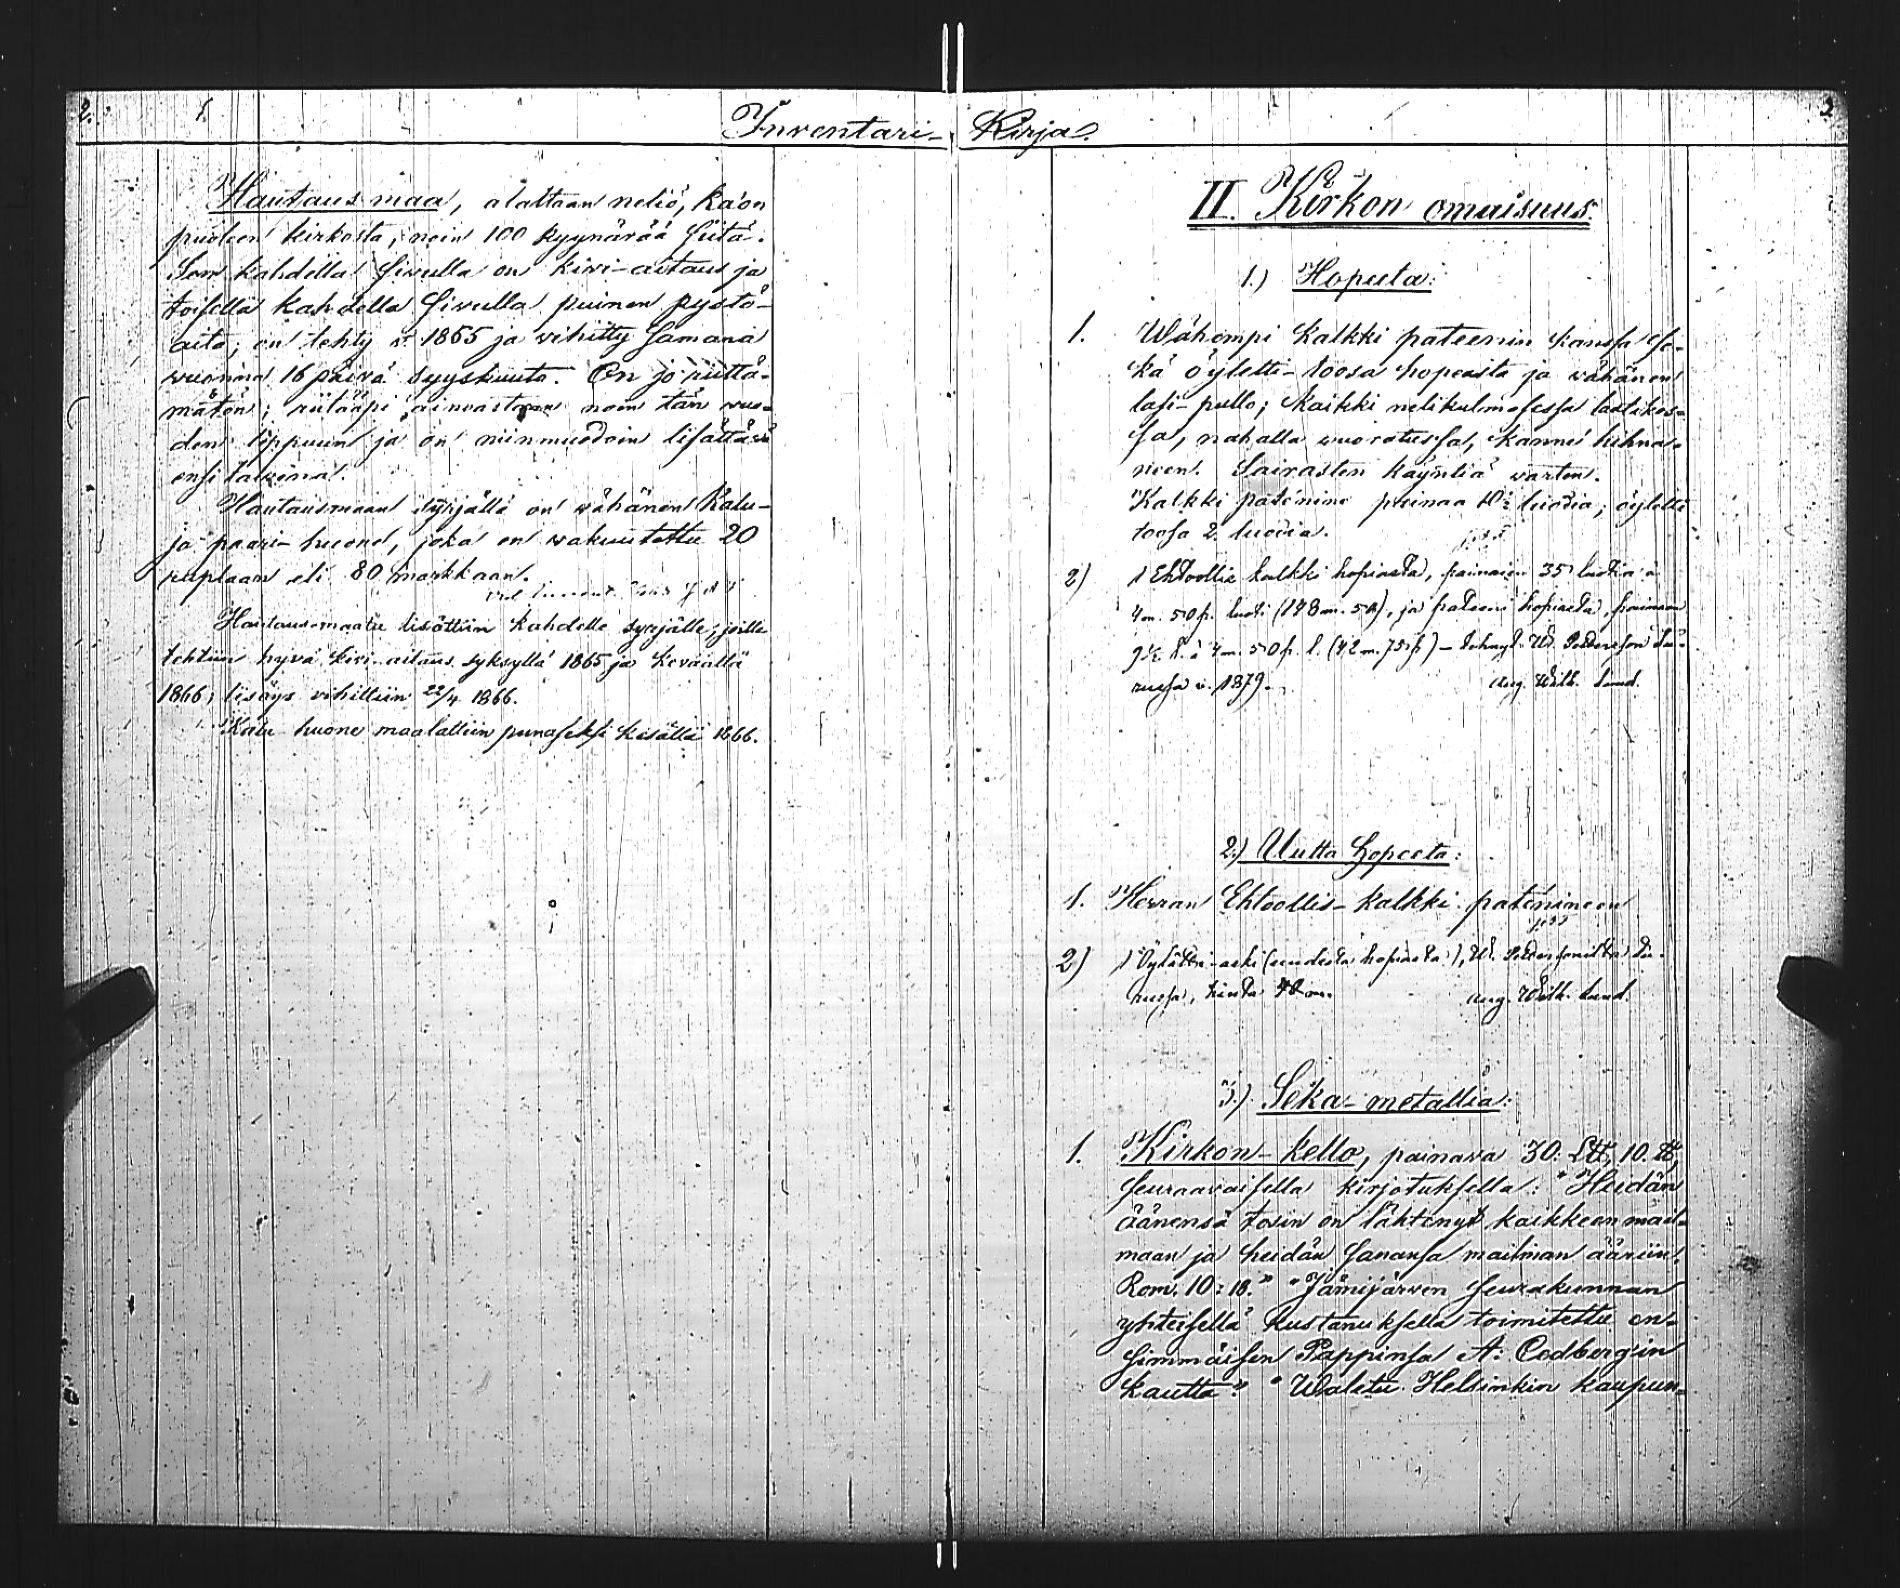 2. 1. Inventari- Kirja. 3
Hautaus maa, alaltaan neliö, itään
puoleen kirkosta, noin 100 kyynärää siitä.
Sen kahdella sivulla on kivi-aitaus ja
toisella kahdella sivulla puinen pystö-
aita; on tehty v. 1855 ja vihitty samana
wuonna 16 päivä syyskuuta. On jo riittä-
mätön; riitääpi ainoastaan noin tän wuo-
den loppuun ja on niinmuodoin lisättävä
ensi talvena.
Hautausmaan syrjällä on vähänen kalu-
ja paari-huone, joka on vakuutettu 20
ruplaan eli 80 markkaan.
Hautausmaata lisättiin kahdelle syrjälle, joille
tehtiin hyvä kivi-aitaus syksyllä 1865 ja keväällä
1866; lisäys vihittiin 22/4 1866.
Kalu-huone maalattiin punaseksi kesällä 1866.
II. Kirkon omaisuus.
1.) Hopeeta:
1. Wähempi kalkki pateenin kanssa se-
kä öyletti-toosa hopeasta ja vähänen
lasi-pullo; kaikki nelikulmasessa laatikos-
sa, nahalla vuoratussa, kannel hihna-
neen. Sairasten käyntiä varten.
Kalkki patenine painaa 10½ luodia; öyletti
toosa 2 luodia.
2) 1 Ehtoollis kalkki hopiasta, painaien 35 luotia à
4 m. 50 p. luoti (148 m. 50), ja pateeni hopiasta, painaen
9½ l. à 4 m. 50 p. l. (42 m. 75 p) - tehnyt W. Pettersson Tu-
russa v. 1879. Aug. Wilh. Lund.
2.) Uutta hopeeta:
1. Herran Ehtoollis-kalkki patenineen
2) 1 Öylätti-aski (uudesta hopiasta), W. Petterssonilta Tu-
russa, hinta 48 m. Aug. Wilh. Lund.
3.) Seka-metallia:
1. Kirkon-kello, painava 30: L℔, 10. ℔,
seuraavaisella kirjotuksella: "Heidän
äänensä tosin on lähtenyt kaikkeen mail-
maan ja heidän sanansa mailman ääriin.
Rom. 10: 18." "Jämijärven seurakunnan
yhteisellä kustanuksella toimitettu en-
simmäisen Pappinsa A: Cedberg'in
kautta." "Waletu Helsinkin kaupun-